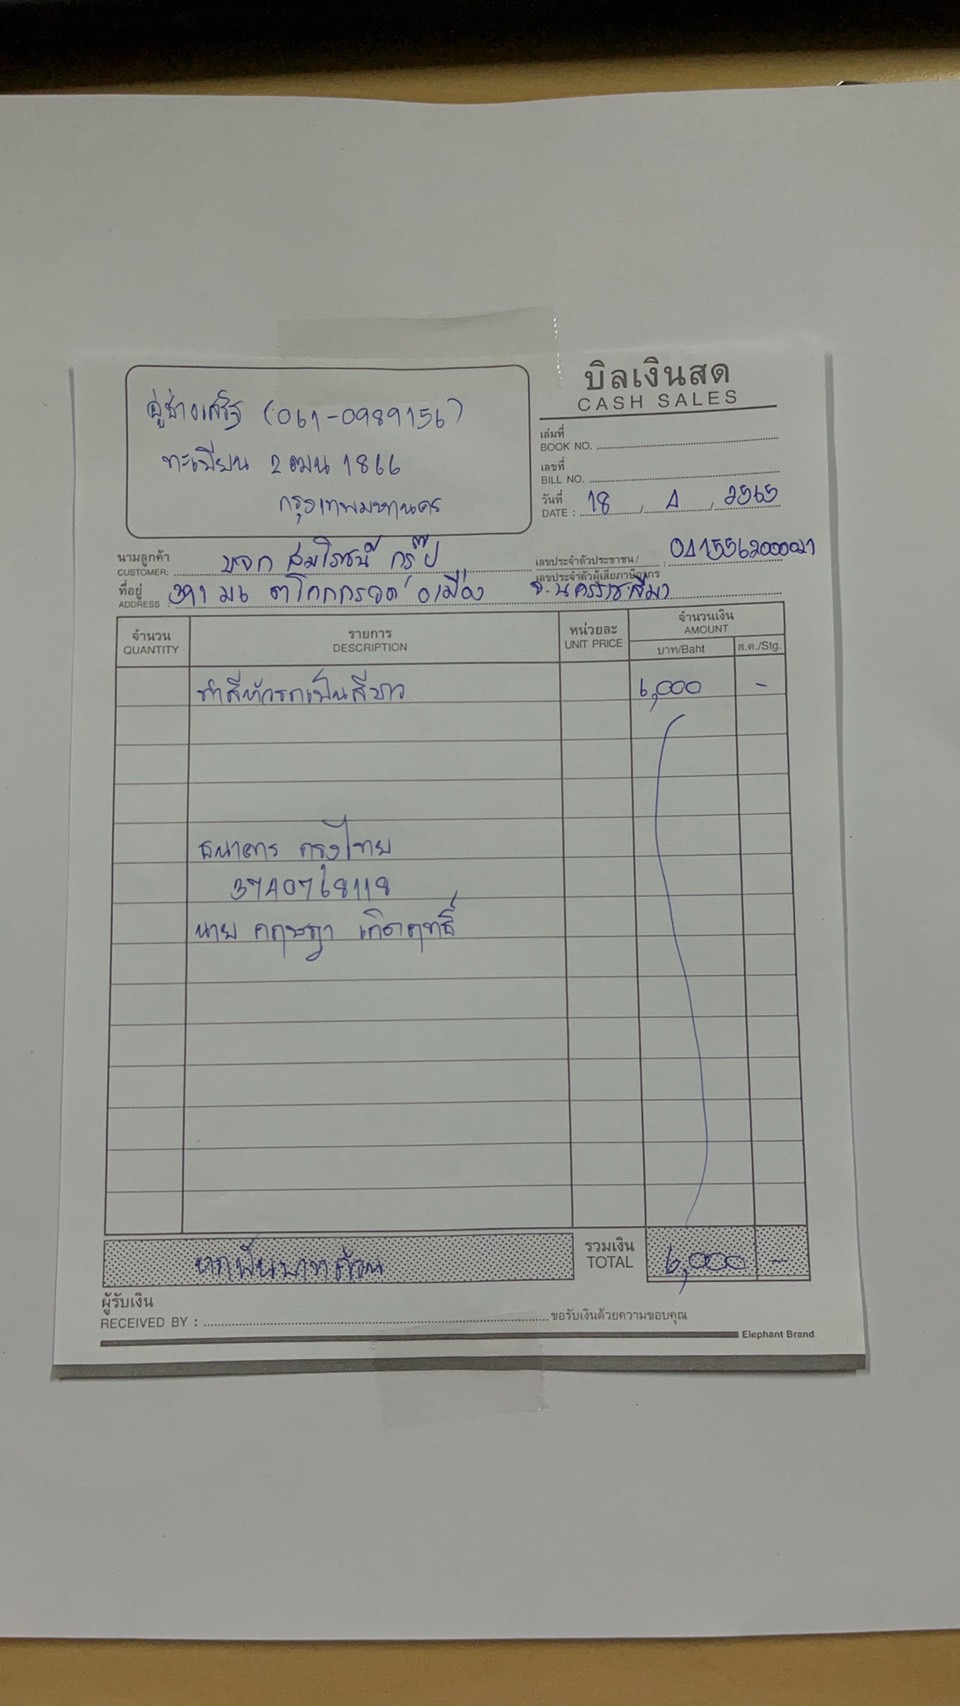 บิลเงินสด
CASH SALES
อู่ช่างเสริฐ (061-0989156)
ทะเบียน 2ฒน 1866
กรุงเทพมหานคร
เล่มที่
BOOK NO.
เลขที่
BILL NO.
วันที่
DATE : 18 , 4 , 2565
นามลูกค้า
CUSTOMER: บจก สมโภชน์ กรุ๊ป
เลขประจำตัวประชาชน / เลขประจำตัวผู้เสียภาษีอากร :
ที่อยู่
ADDRESS : 391 ม6 ต โคกกรวด อ เมือง จ.นครราชสีมา
จำนวน
QUANTITY
รายการ
DESCRIPTION
หน่วยละ
UNIT PRICE
จำนวนเงิน
AMOUNT
บาท/Baht ส.ต./Stg.
ทำสีหัวรถเป็นสีขาว 6,000 -
ธนาคาร กรุงไทย
3740768118
นาย กฤษฎา เกิดฤทธิ์
หกพันบาทถ้วน
รวมเงิน
TOTAL 6,000 -
ผู้รับเงิน
RECEIVED BY : ขอรับเงินด้วยความขอบคุณ
Elephant Brand